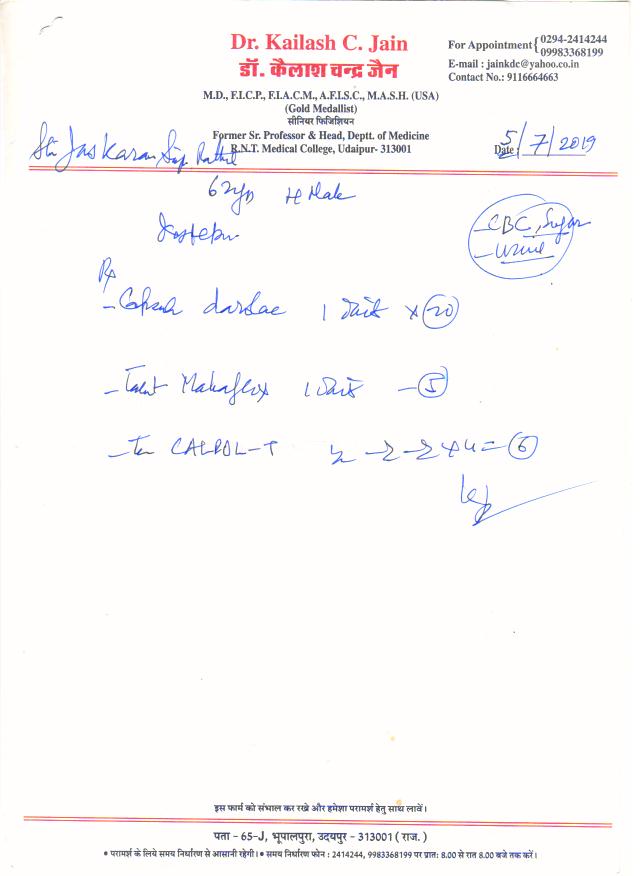 Dr. Kailash C. Jain
डॉ. कैलाश चन्द्र जैन
M.D., F.I.C.P., F.I.A.C.M., A.F.I.S.C., M.A.S.H. (USA)
(Gold Medallist)
सीनियर फिजिशियन
Former Sr. Professor & Head, Deptt. of Medicine
R.N.T. Medical College, Udaipur- 313001
For Appointment { 0294-2414244
09983368199
E-mail : jainkdc@yahoo.co.in
Contact No.: 9116664663
Jas Karan
Date : 5/7/2019
62 Male
- CBC, Sugar
- Urine
Rx
- 1 x 20
- 1 - 5
- CALPOL-T = 6
इस फार्म को संभाल कर रखे और हमेशा परामर्श हेतु साथ लावें।
पता - 65-J, भूपालपुरा, उदयपुर - 313001 ( राज. )
• परामर्श के लिये समय निर्धारण से आसानी रहेगी। • समय निर्धारण फोन : 2414244, 9983368199 पर प्रात: 8.00 से रात 8.00 बजे तक करें।